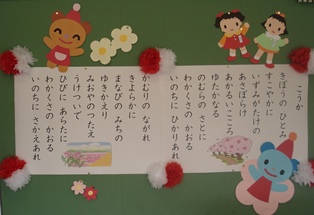 こうか
きぼうの ひとみ
すこやかに
いずみがたけの
あさぼらけ
あかるい こころ
ゆたかなる
のむらの さとに
わかくさの かおる
いのちに ひかりあれ
かむりの ながれ
きよらかに
まなびの みちの
ゆきかえり
みおやの つたえ
うけついで
ひびに あらたに
わかくさの かおる
いのちに さかえあれ